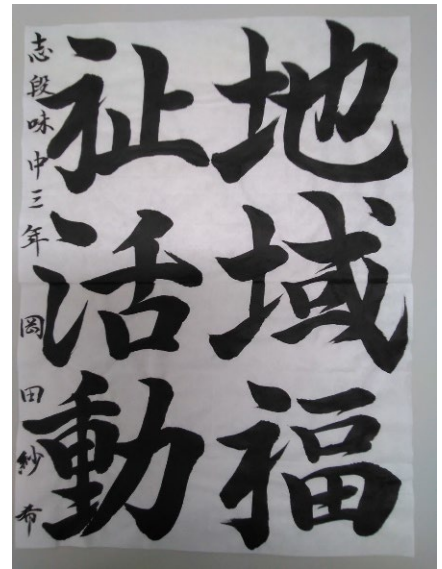 地域福
祉活動
志段味中三年 岡田紗希